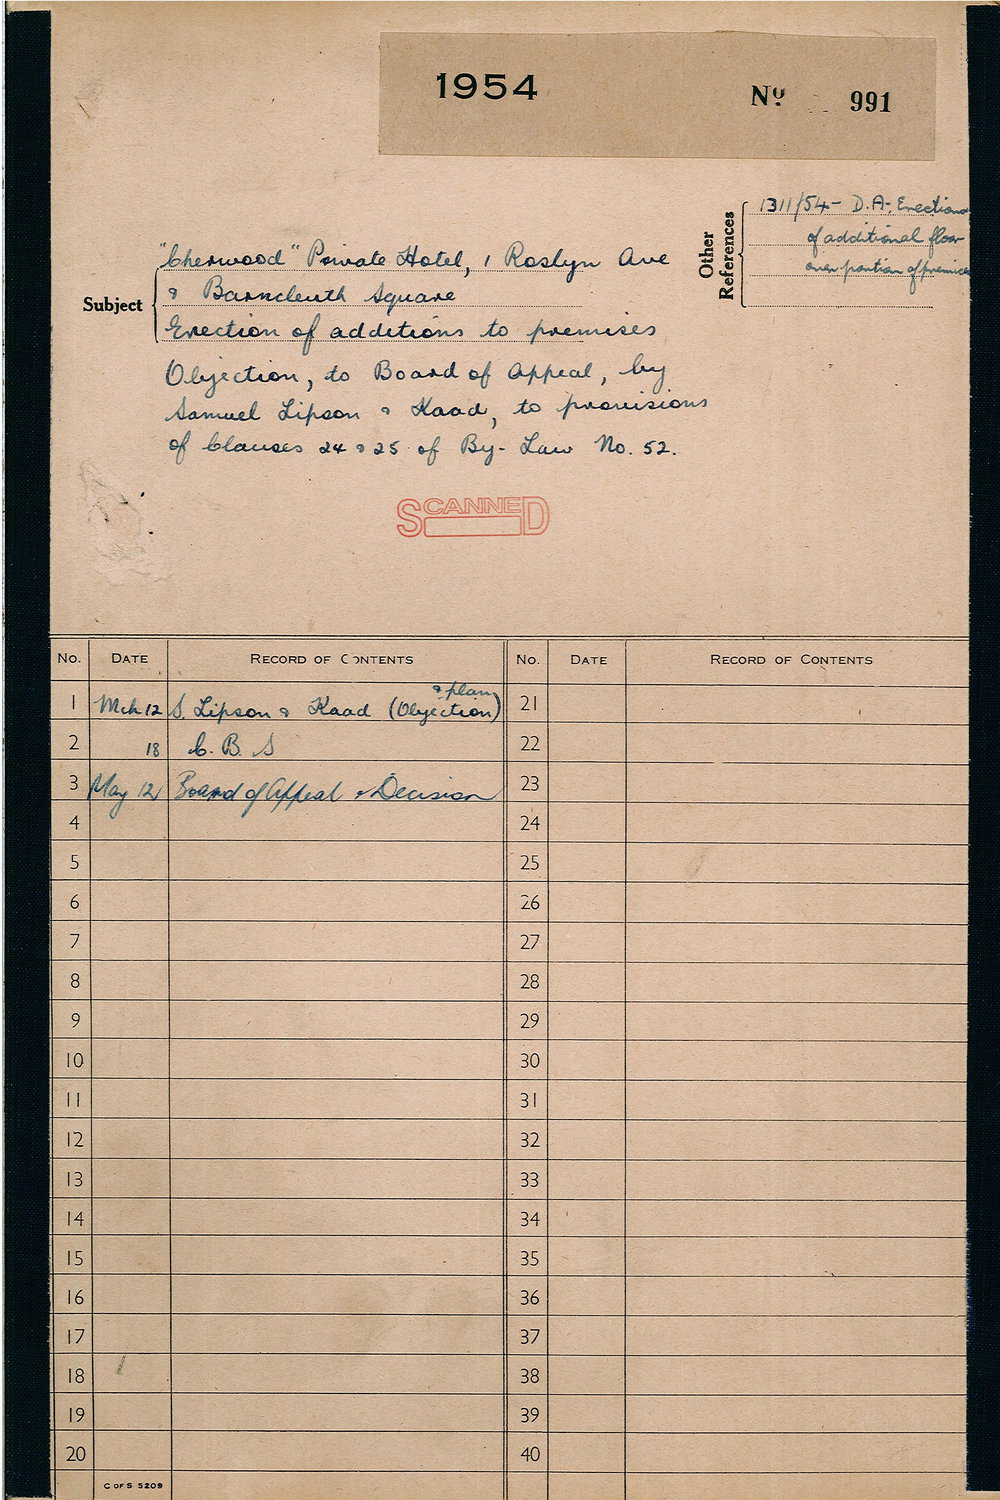 1954
No 991
Other References
1311/54 - D.A-, Erection
of additional floor
over portion of premises
Subject
"Cherwood" Private Hotel, 1 Roslyn Ave
& Barncleuth Square
Erection of additions to premises
Objection, to Board of Appeal, by
Samuel Lipson & Kaad, to provisions
of Clauses 24 & 25 of By-Law No. 52.
SCANNED
No. DATE RECORD OF CONTENTS No. DATE RECORD OF CONTENTS
& plan
1 Mch 12 S. Lipson & Kaad (Objection) 21
2 18 C. B. S 22
3 May 12 Board of Appeal & Decision 23
4 24
5 25
6 26
7 27
8 28
9 29
10 30
11 31
12 32
13 33
14 34
15 35
16 36
17 37
18 38
19 39
20 40
C OF S 5209